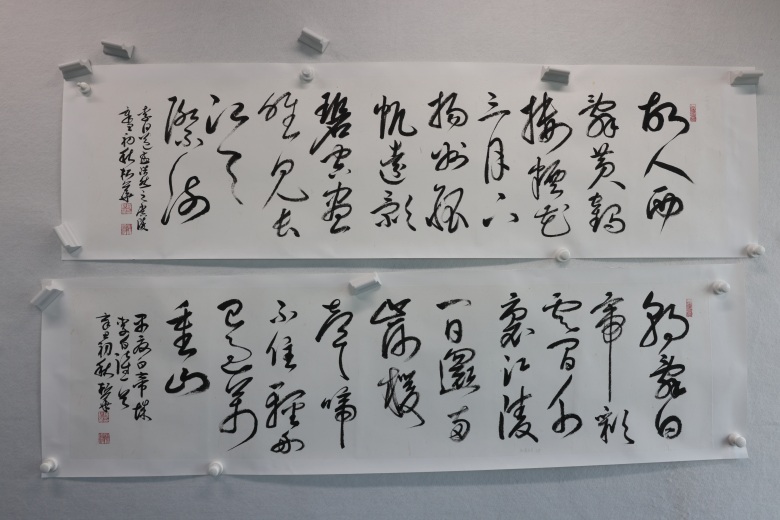 故人西
辭黄鶴
樓煙花
三月下
揚州孤
帆遠影
碧空盡
唯見長
江天
際流
李白送孟浩然之廣陵
辛丑初秋
朝辭白
帝彩
雲間千
里江陵
一日還兩
岸猿
聲啼
不住輕舟
已過萬
重山
早發白帝城
李白詩一首
辛丑初秋